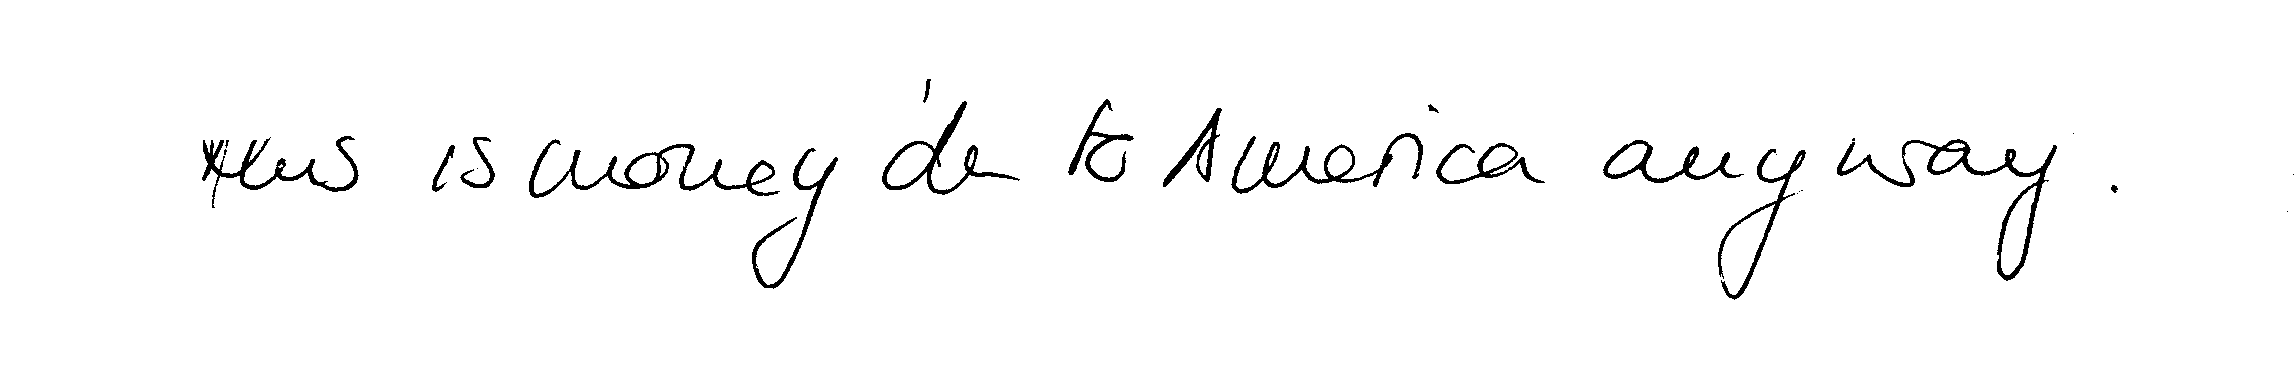 this is money due to America anyway.